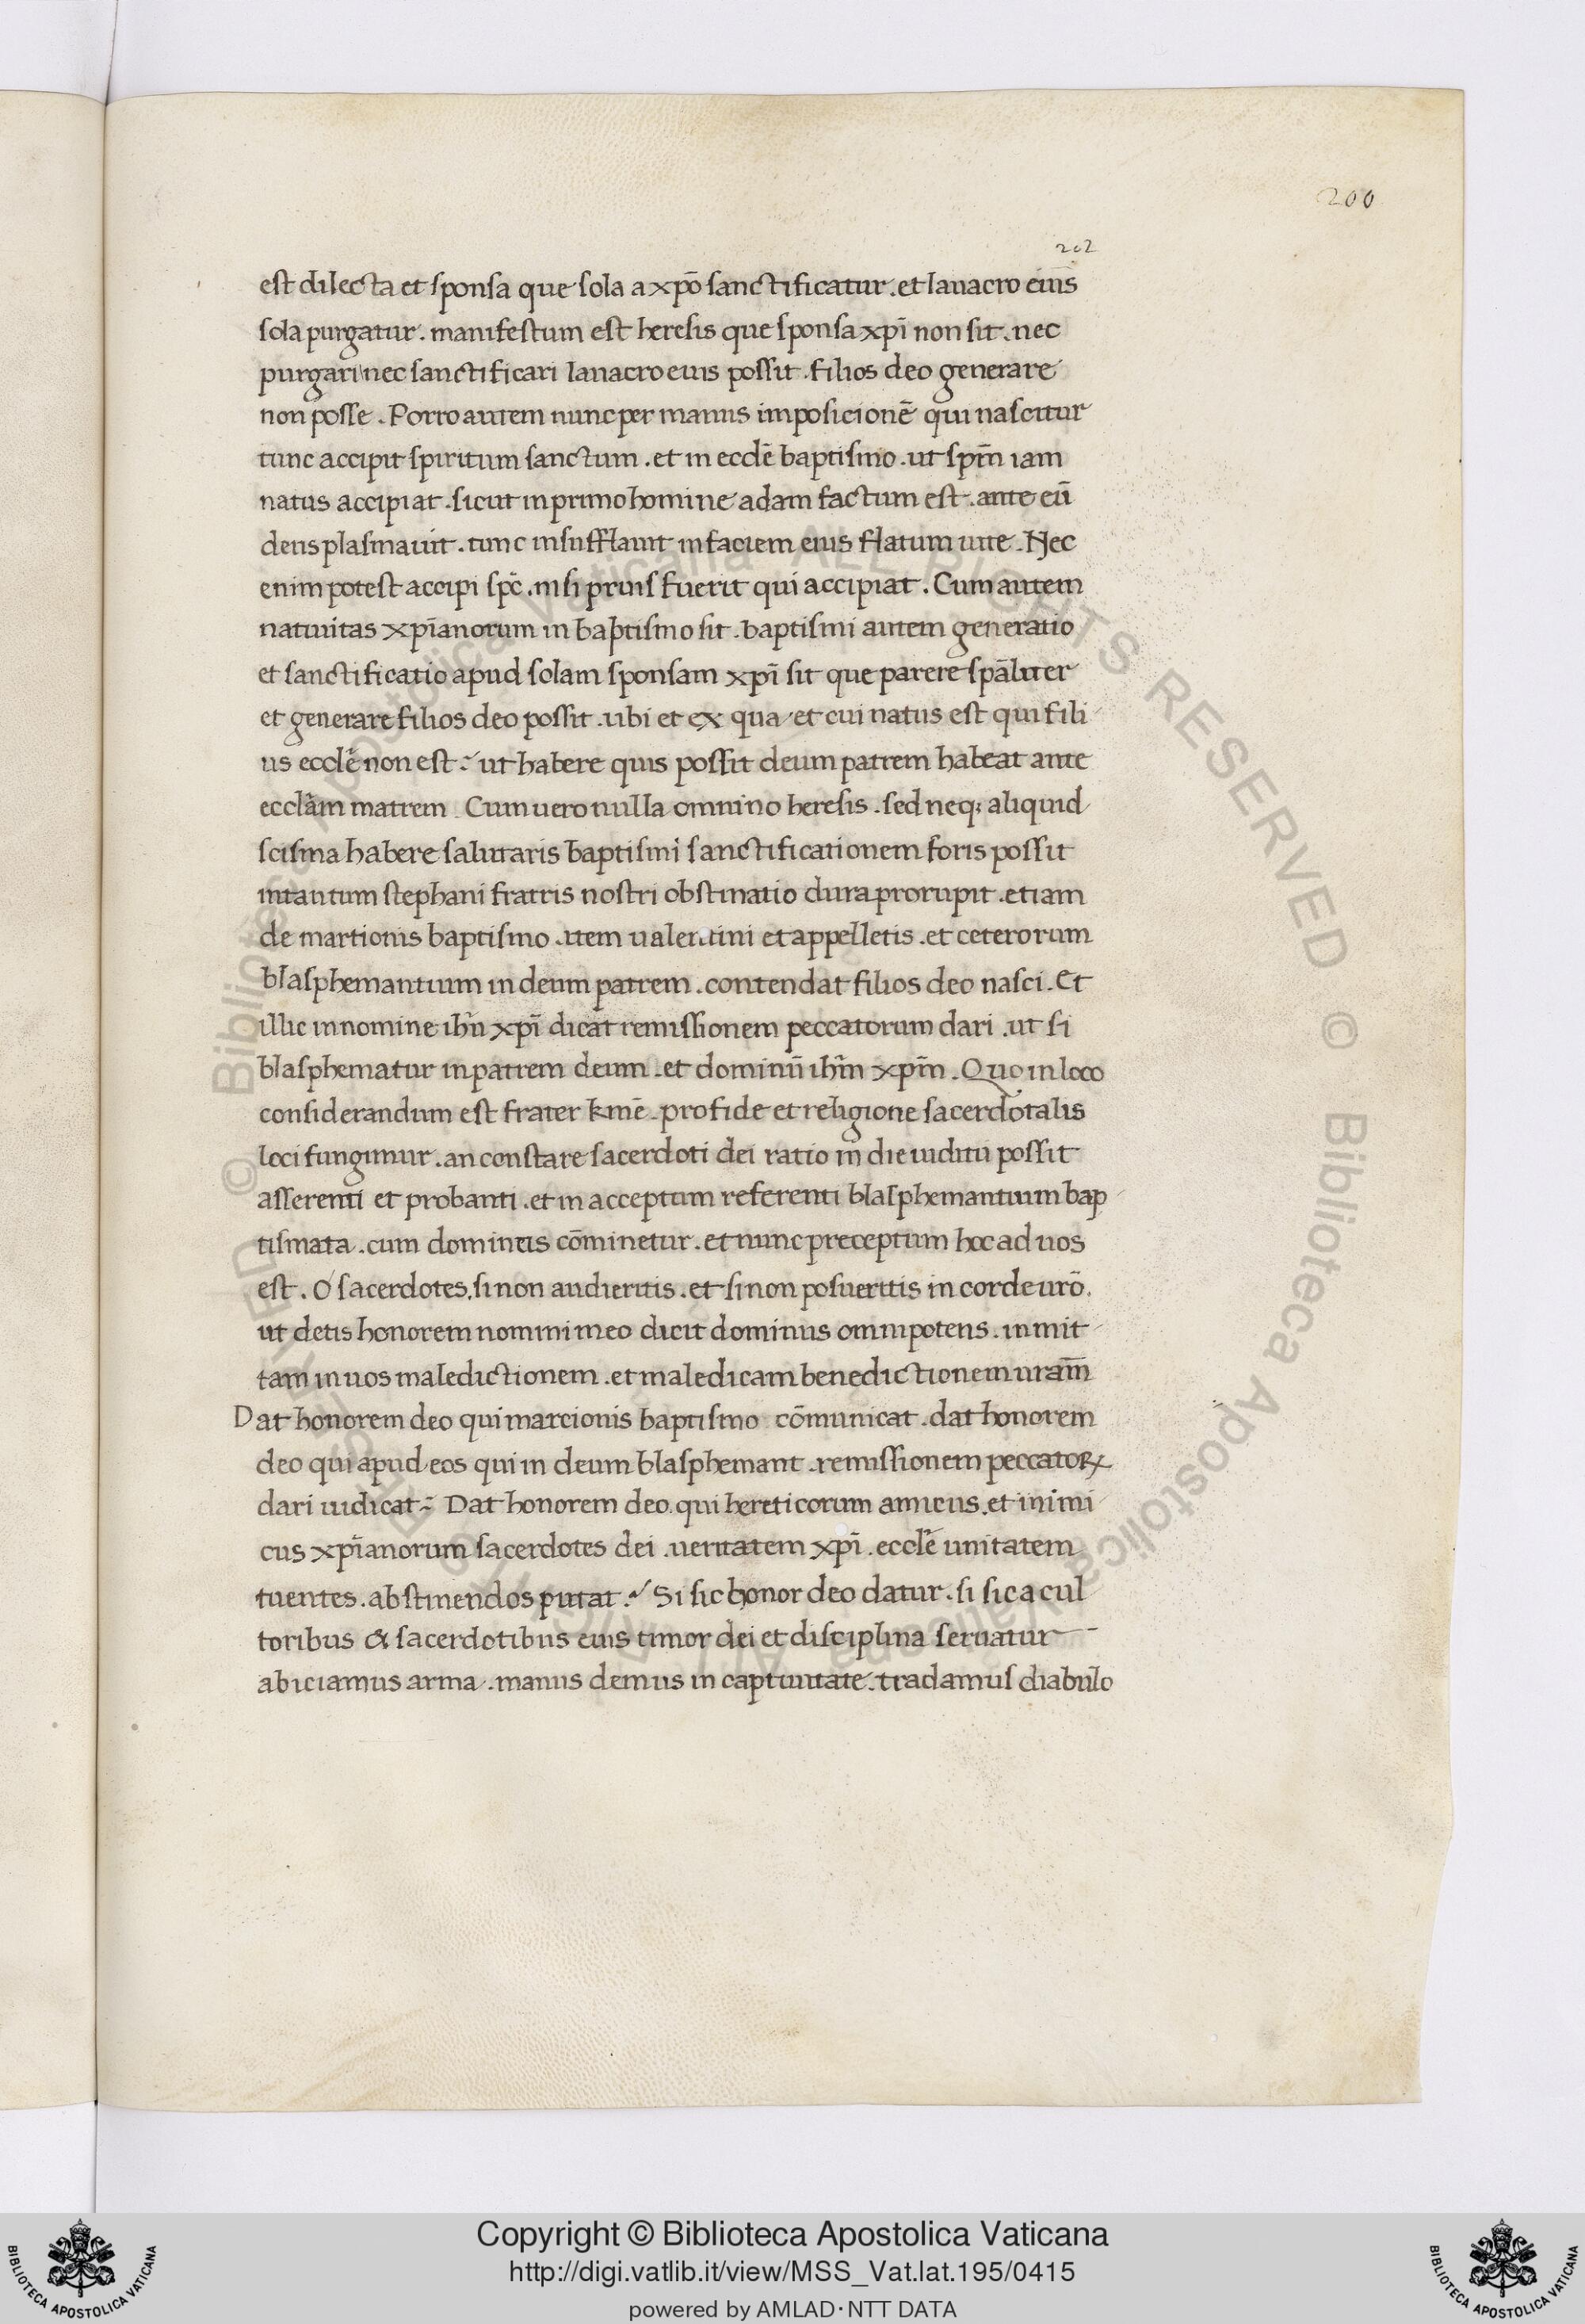 200
202
est dilecta et sponsa que sola a xp̄o sanctificatur . et lauacro eius
sola purgatur . manifestum est heresis que sponsa xp̄i non sit . nec
purgari nec sanctificari lauacro eius possit . filios deo generare
non posse . Porro autem nunc per manus imposicionē qui nascitur
tunc accipit spiritum sanctum . et in eccl̄e baptismo . ut sp̄m iam
natus accipiat . sicut in primo homine adam factum est . ante eū
deus plasmauit . tunc insufflauit in faciem eius flatum uite . Nec
enim potest accipi sp̄c . nisi prius fuerit qui accipiat . Cum autem
natiuitas xp̄ianorum in baptismo sit . baptismi autem generatio
et sanctificatio apud solam sponsam xp̄i sit que parere sp̄aliter
et generare filios deo possit . ubi et ex qua et cui natus est qui fili
us eccl̄e non est : ut habere quis possit deum patrem habeat ante
eccl̄am matrem . Cum uero nulla omnino heresis . sed neq; aliquid
scisma habere salutaris baptismi sanctificationem foris possit
intantum stephani fratris nostri obstinatio dura prorupit . etiam
de martionis baptismo . item ualentini et appelletis . et ceterorum
blasphemantium in deum patrem . contendat filios deo nasci . Et
illic in nomine ih̄u xp̄i dicat remissionem peccatorum dari . ut si
blasphematur in patrem deum . et dominū ih̄m xp̄m . Quo in loco
considerandum est frater kmē . pro fide et religione sacerdotalis
loci fungimur . an constare sacerdoti dei ratio in die iuditii possit
asserenti et probanti . et in acceptum referenti blasphemantium bap
tismata . cum domineis cōminetur . et nunc preceptum hoc ad uos
est . O sacerdotes . si non audieritis . et si non posueritis in corde urō .
ut detis honorem nomini meo dicit dominus omnipotens . inmit
tam in uos maledictionem . et maledicam benedictionem uram̄
Dat honorem deo qui marcionis baptismo cōmunicat . dat honorem
deo qui apud eos qui in deum blasphemant . remissionem peccatoꝝ
dari iudicat : Dat honorem deo . qui hereticorum amicus . et inimi
cus xp̄ianorum sacerdotes dei . ueritatem xp̄i . eccl̄e unitatem
tuentes . abstinendos putat : Si sic honor deo datur . si sic a cul
toribus & sacerdotibus eius timor dei et disciplina seruatur
abiciamus arma . manus demus in captiuitate . tradamus diabulo
© Biblioteca Apostolica Vaticana ALL RIGHTS RESERVED © Biblioteca Apostolica Vaticana ALL RIGHTS RESERVED
Copyright © Biblioteca Apostolica Vaticana
http://digi.vatlib.it/view/MSS_Vat.lat.195/0415
powered by AMLAD·NTT DATA
BIBLIOTECA APOSTOLICA VATICANA
BIBLIOTECA APOSTOLICA VATICANA